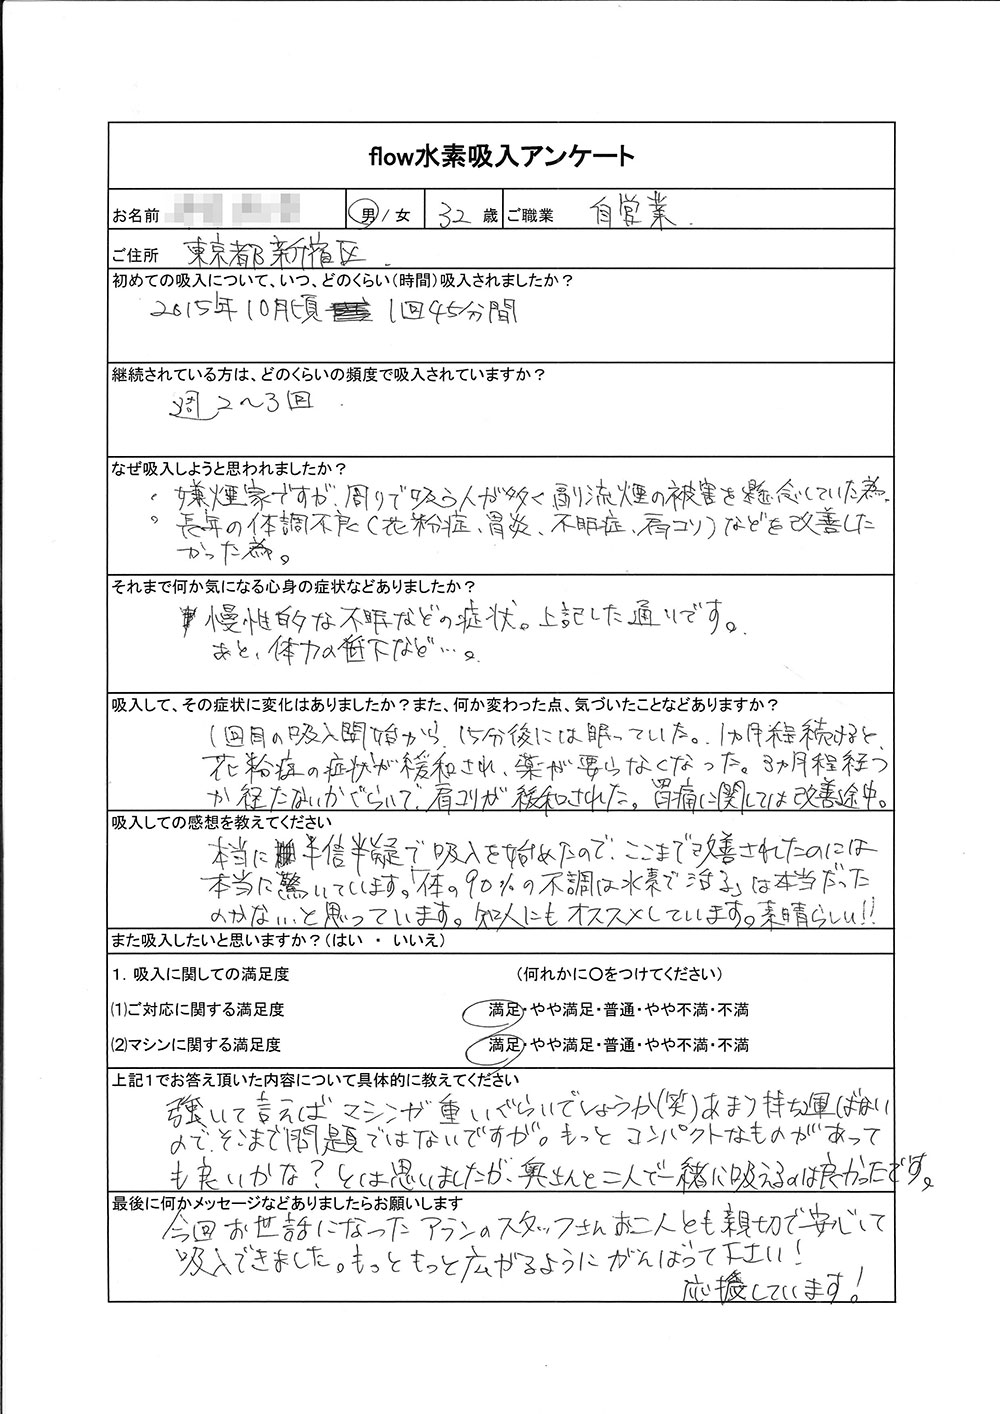 flow水素吸入アンケート
お名前 男 / 女 32 歳 ご職業 自営業.
ご住所 東京都新宿区.
初めての吸入について、いつ、どのくらい(時間)吸入されましたか?
2015年10月頃 1回45分間
継続されている方は、どのくらいの頻度で吸入されていますか?
週2〜3回.
なぜ吸入しようと思われましたか?
。嫌煙家ですが、周りで吸う人が多く副流煙の被害を懸念していた為。
。長年の体調不良(花粉症、胃炎、不眠症、肩コリ)などを改善した
かった為。
それまで何か気になる心身の症状などありましたか?
慢性的な不眠などの症状。上記した通りです。
あと、体力の低下など…。
吸入して、その症状に変化はありましたか?また、何か変わった点、気づいたことなどありますか?
1回目の吸入開始から、15分後には眠っていた。1カ月程続すると、
花粉症の症状が緩和され、薬が要らなくなった。3カ月程経つ
か経たないかぐらいで、肩コリが緩和された。胃痛に関しては改善途中。
吸入しての感想を教えてください
本当に半信半疑で吸入を始めたので、ここまで改善されたのには
本当に驚いています。「体の90%の不調は水素で治る」は本当だった
のかな…と思っています。知人にもオススメしています。素晴らしい!!
また吸入したいと思いますか?(はい ・ いいえ)
1. 吸入に関しての満足度 (何れかに〇をつけてください)
(1)ご対応に関する満足度 満足・やや満足・普通・やや不満・不満
(2)マシンに関する満足度 満足・やや満足・普通・やや不満・不満
上記1でお答え頂いた内容について具体的に教えてください
強いて言えばマシンが重いぐらいでしょうか(笑)あまり持ち運ばない
ので、そこまで問題ではないですが。もっとコンパクトなものがあって
も良いかな?とは思いましたが、奥さんと二人で一緒に吸えるのは良かったです。
最後に何かメッセージなどありましたらお願いします
今回お世話になったアランのスタッフさんお二人とも親切で安心して
吸入できました。もっともっと広がるようにがんばって下さい!
応援しています!